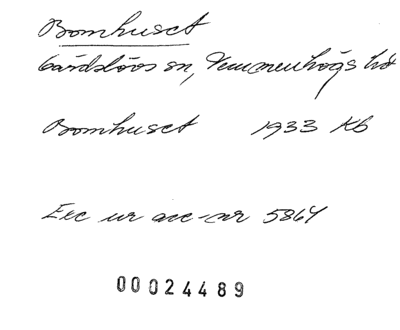 Bomhuset
Gärdslövs sn, Vemmenhögs hd
Bomhuset 1933 Kb
Exc ur acc-nr 5864
00024489